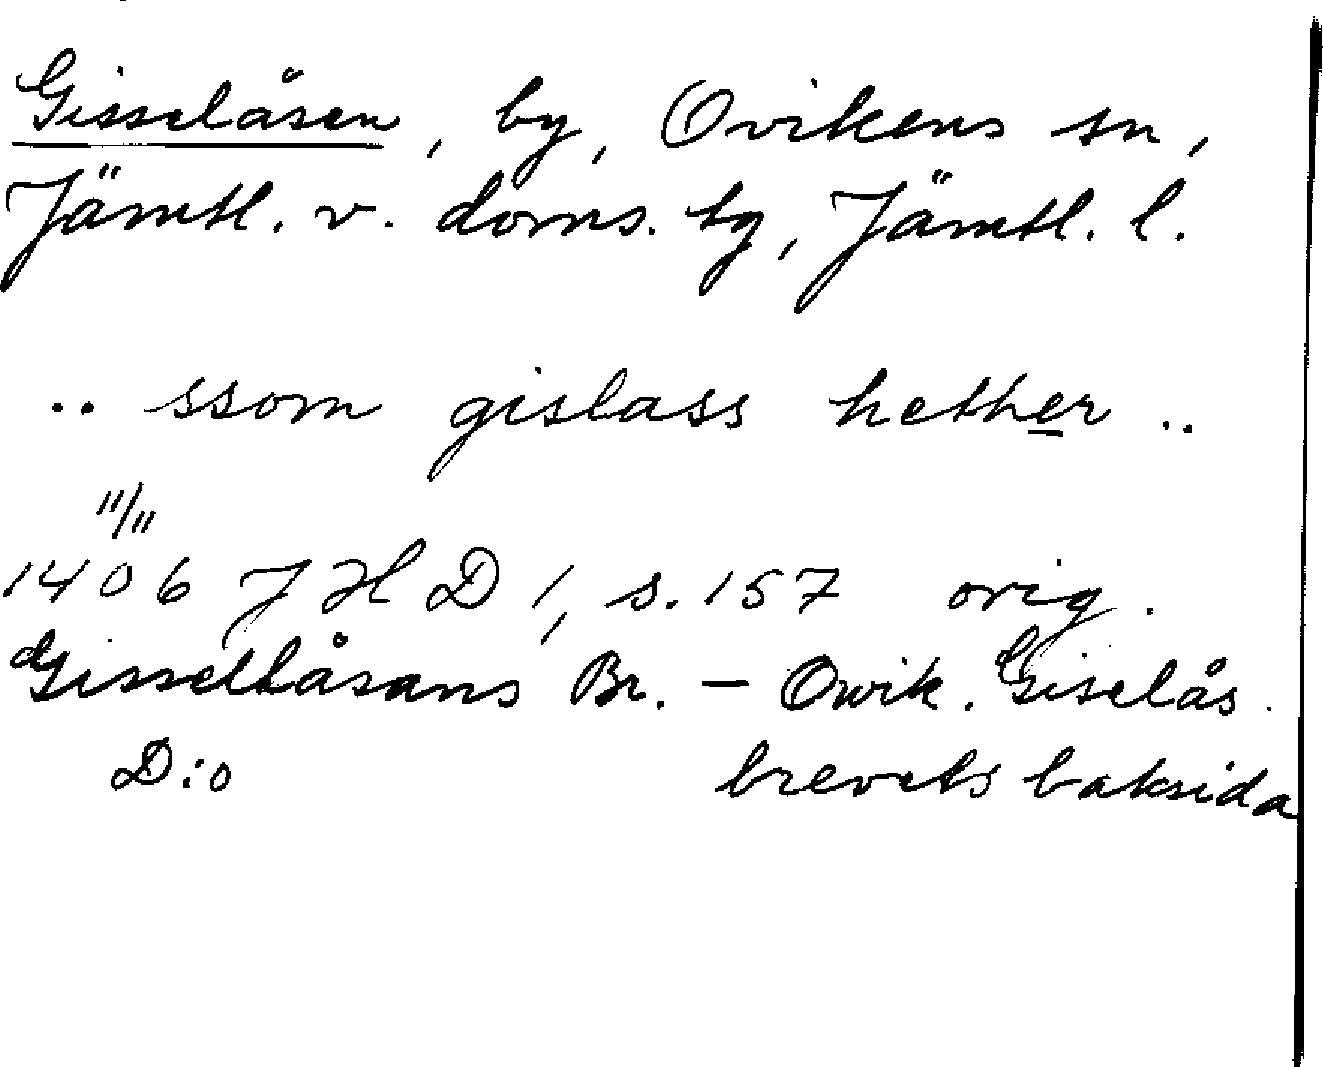 Gisselåsen, by, Ovikens sn,
Jämtl. v. doms. tg, Jämtl. l.
.. ssom gislass hether ..
11/11
1406 J H D 1, s. 157 orig.
Gissellåsans Br. – Owik. Giselås.
D:o brevets baksida